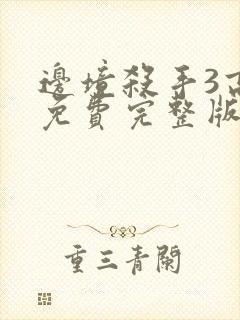 邊境殺手3
免費完整版
重三青闌